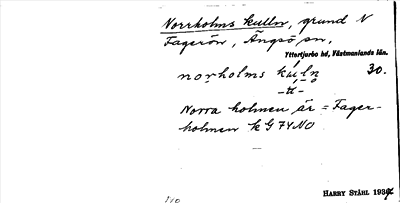 Norrholms kulln, grund N
Fagerön, Ängsö sn,
Yttertjurbo hd, Västmanlands län.
norholms kuln 30.
-tt-
Norra holmen är = Fager-
holmen k G 74 NO
HARRY STÅHL 1937